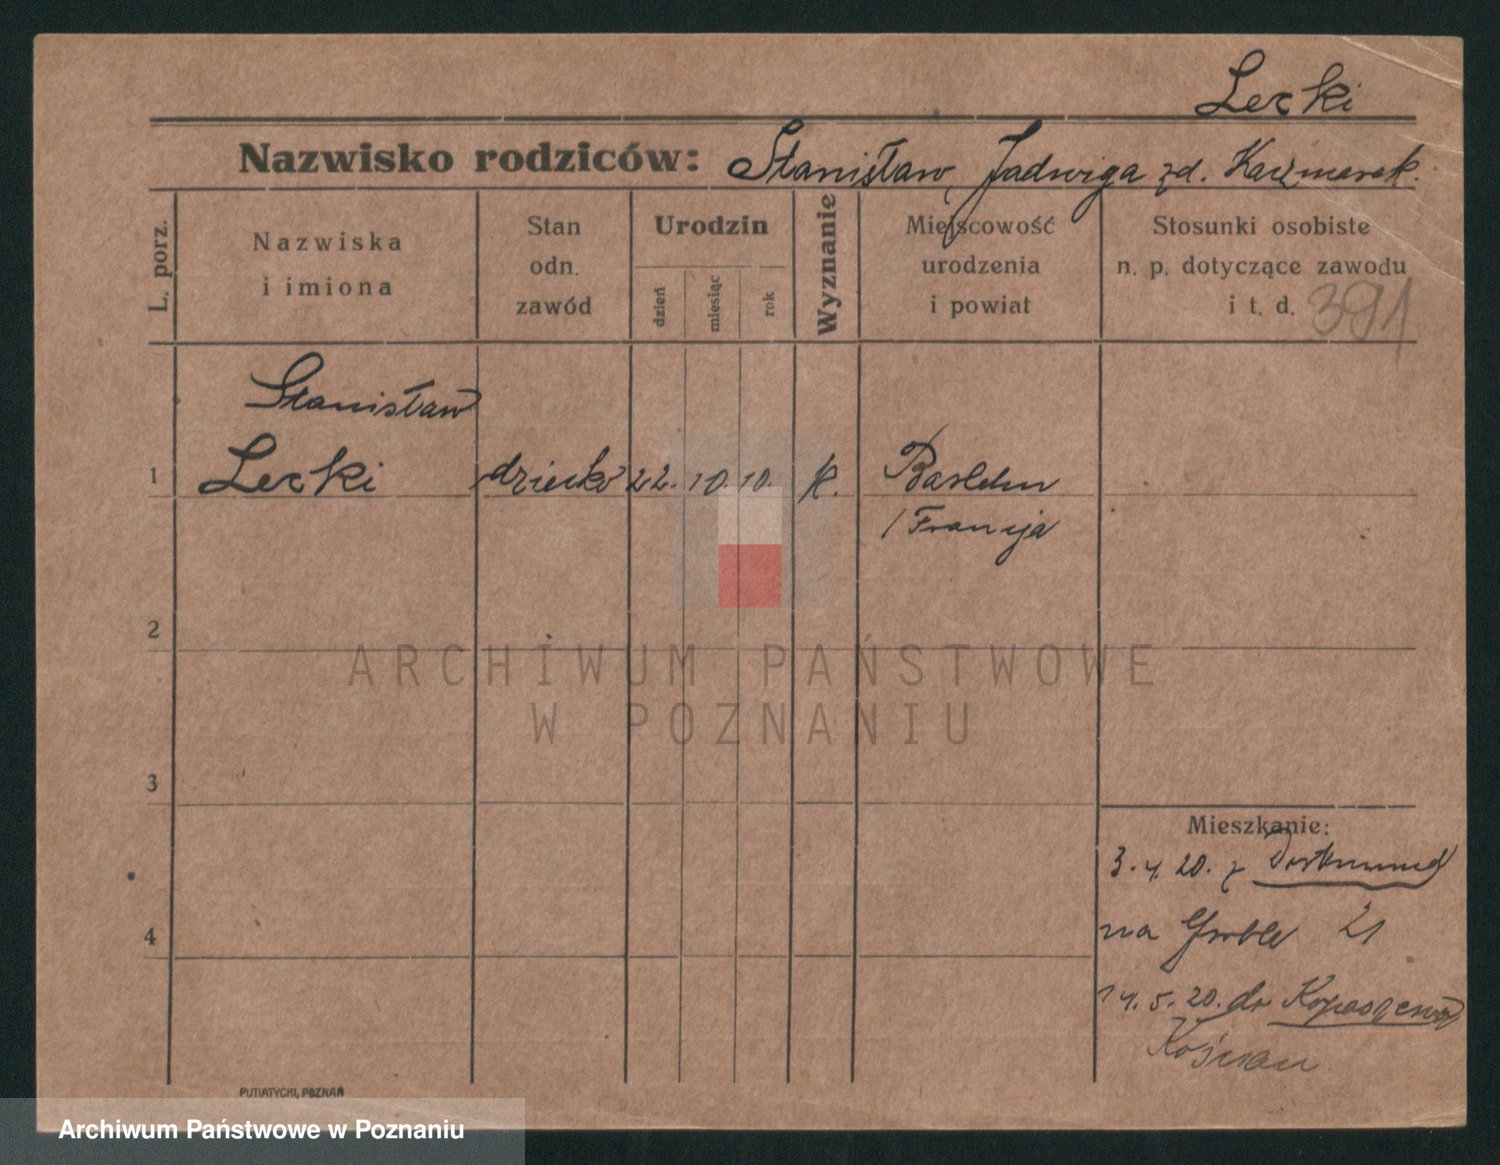 Lecki
Nazwisko rodziców: Stanisław, Jadwiga zd. Kaczmarek.
L. porz.
Nazwiska
i imiona
Stan
odn.
zawód
Urodzin
dzień
miesiąc
rok
Wyznanie
Miejscowość
urodzenia
i powiat
Stosunki osobiste
n. p. dotyczące zawodu
i t. d.
391
Stanisław
1 Lecki dziecko 22. 10. 10. k.
/Francja
2
3
4
ARCHIWUM PAŃSTWOWE
W POZNANIU
Mieszkanie:
3. 4. 20. z Dortmund
na Groble 21
14. 5. 20. do Kopaszewa
Kościan
PUTIATYCKI, POZNAŃ
Archiwum Państwowe w Poznaniu